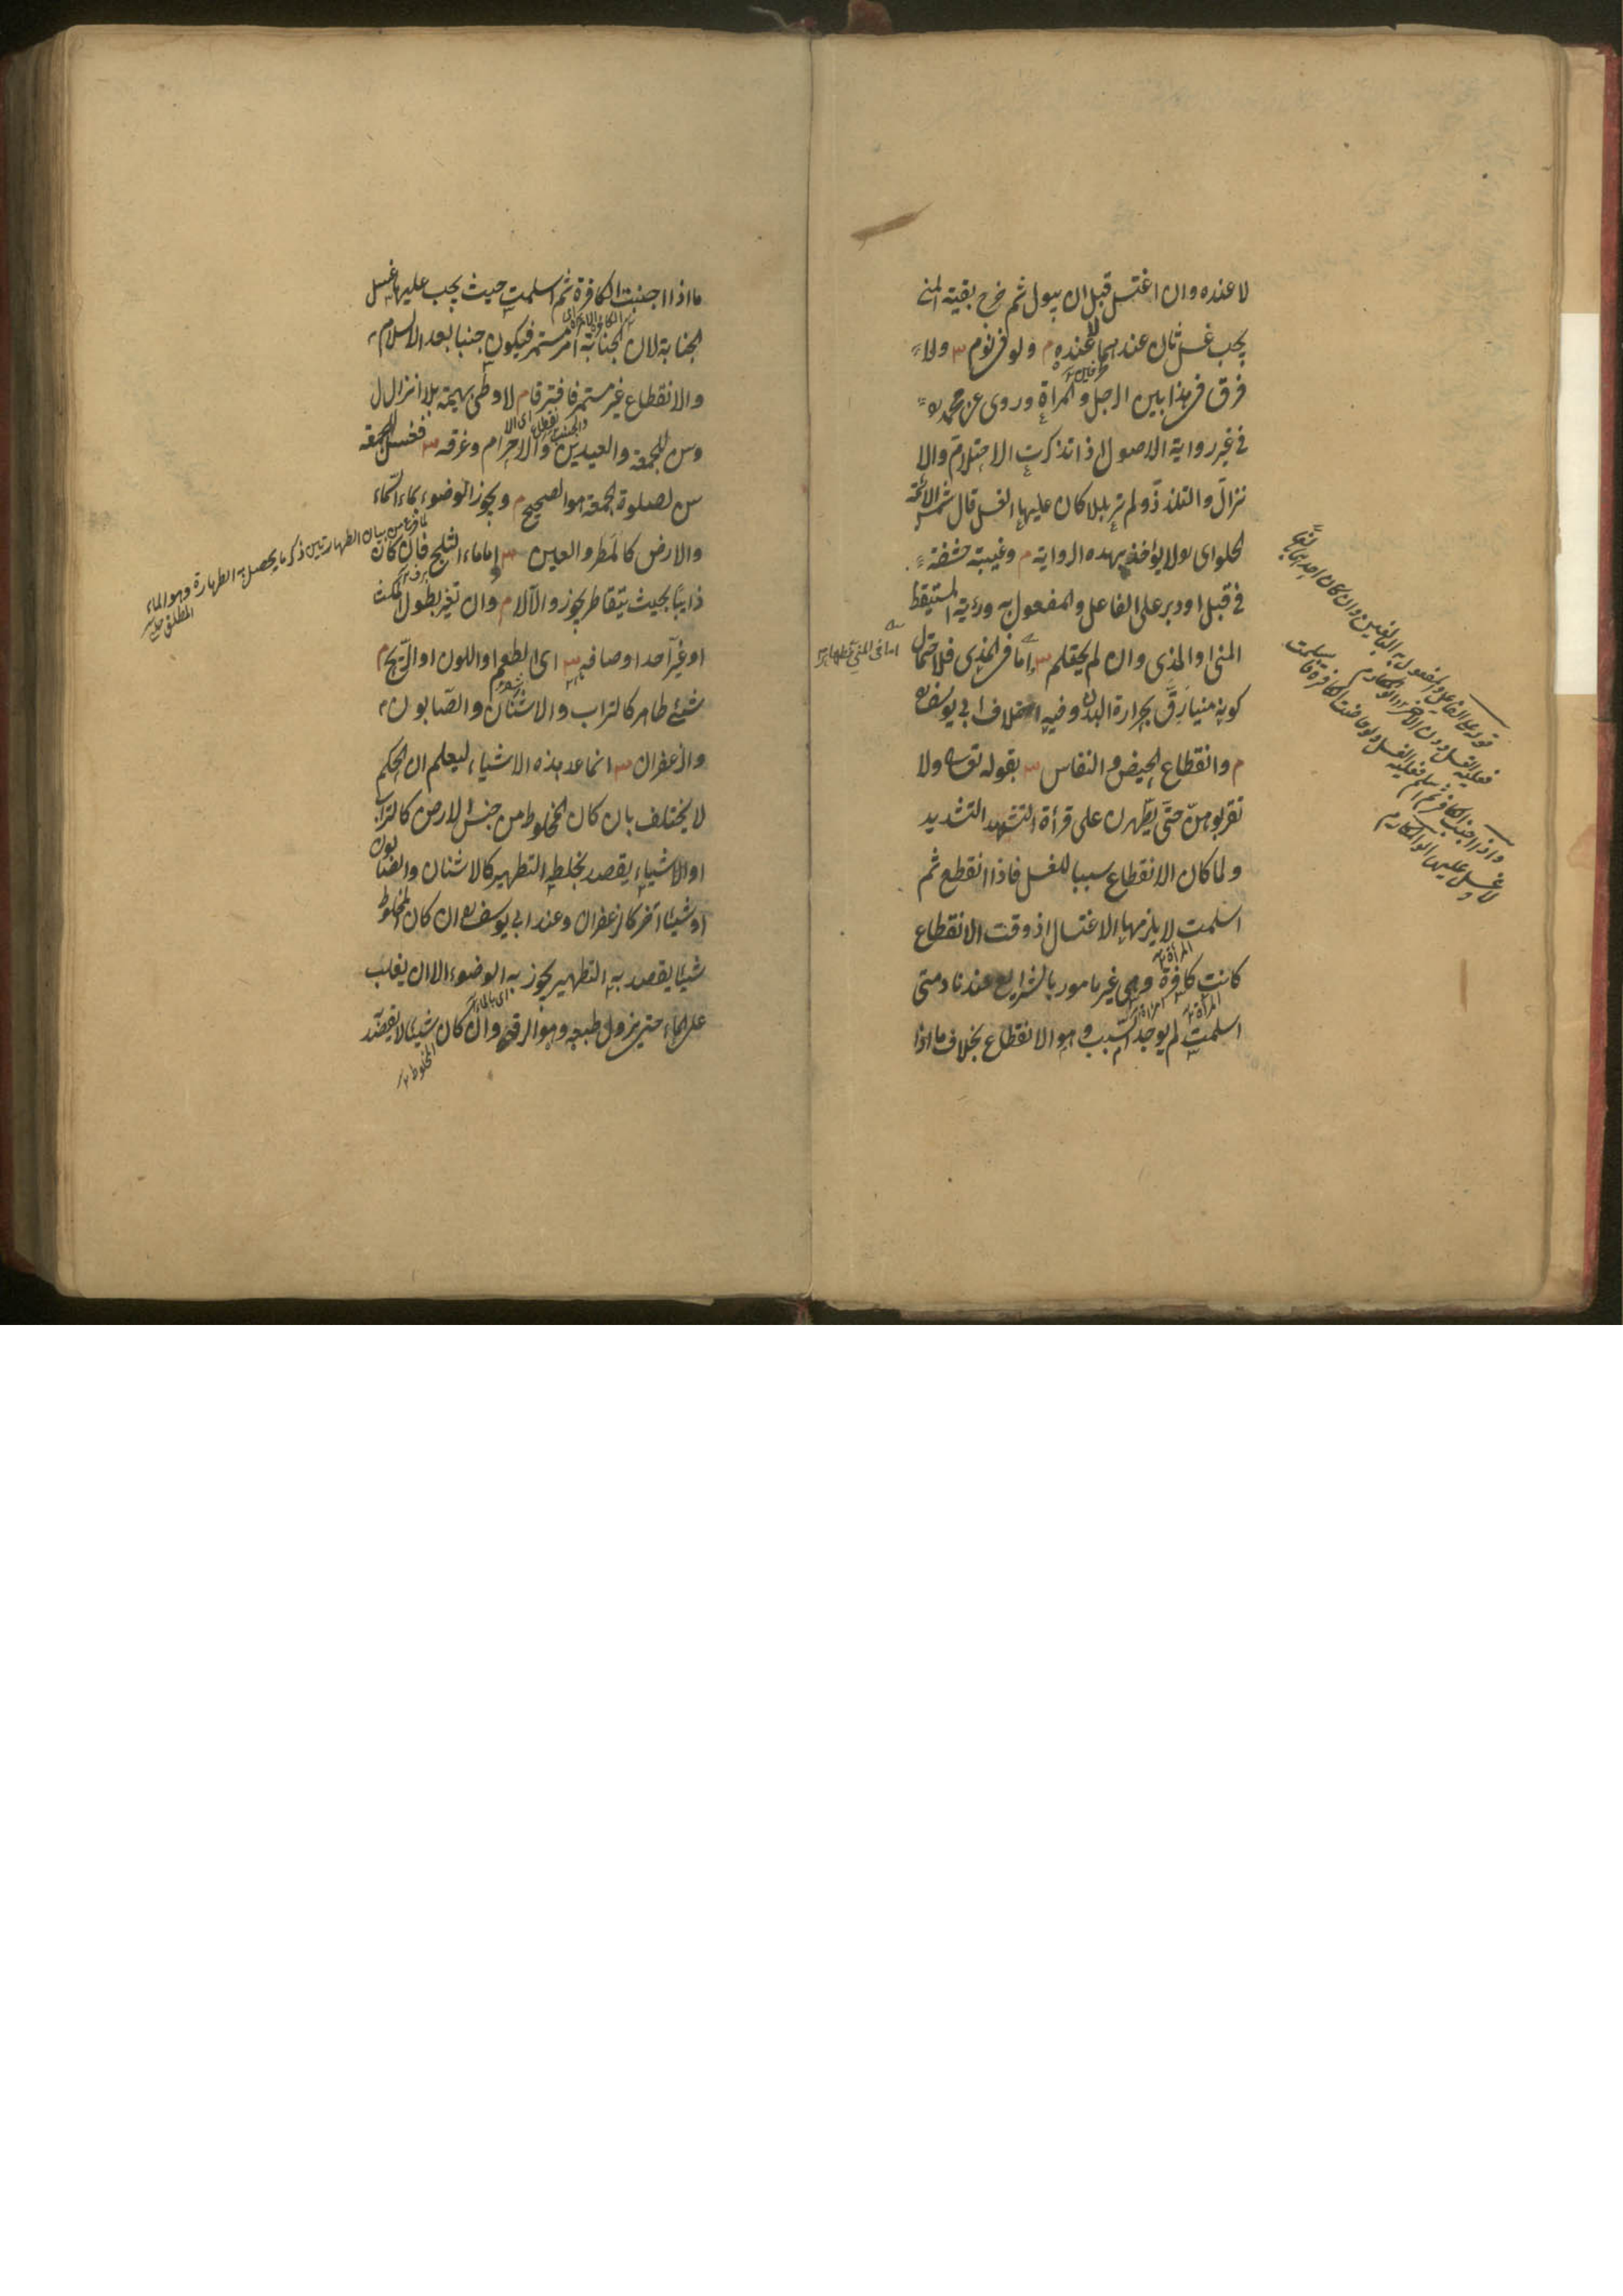 لا عنده وان اغتسل قبل ان يبول ثم خرج بقية المنى
يجب غسل ثان عندهما لا عنده م ولو فى نوم س ولا
فرق فى هذا بين الرجل والمراة وروى عن محمد
فى غير رواية الاصول اذا تذكرت الاحتلام والا
نزال والتلذذ ولم تر بللا كان عليها الغسل قال شمس الائمة
الحلوائى لا يؤخذ بهذه الرواية م وغيبة حشفة
فى قبل او دبر على الفاعل والمفعول به ورؤية المستيقظ
المنى او المذى وان لم يحتلم س اما فى المذى فلاحتمال
اما فى المنى فظاهر
كونه منيا رق بحرارة البدن وفيه اختلاف ابى يوسف
م وانقطاع الحيض والنفاس س بقوله تعالى ولا
تقربوهن حتى يطهرن على قرأة التشديد
ولما كان الانقطاع سببا للغسل فاذا انقطع ثم
اسلمت لا يلزمها الاغتسال اذ وقت الانقطاع
المراة
كانت كافرة وهى غير مامور بالشرايع عندنا ومتى
المراة
اسلمت لم يوجد السبب وهو الانقطاع بخلاف ما اذا
الفاعل والمفعول به البالغين وان كان احدهما
فعليه الغسل دون الآخر ابو المكارم
واذا اجنب الكافر ثم اسلم فعليه الغسل ولو حاضت الكافرة
لا غسل عليها ابو المكارم
ما اذا اجنبت الكافرة ثم اسلمت حيث يجب عليها غسل
الجنابة لان الجنابة امر مستمر فيكون جنبا بعد الاسلام
والانقطاع غير مستمر فافترقا م لا وطى بهيمة بلا انزال
وسن للجمعة والعيدين والاحرام وعرفه س فغسل الجمعة
سن لصلوة الجمعة هو الصحيح م ويجوز الوضوء بماء السماء
والارض كالمطر والعين س اما ماء الثلج فان كان
لما فرغ من بيان الطهارتين ذكر ما يحصل به الطهارة وهو الماء
المطلق
ذايبا بحيث يتقاطر يجوز والا لا م وان تغير بطول المكث
او غير احد اوصافه س اى الطعم او اللون او الريح م
شئ طاهر كالتراب والاشنان والصابون
والزعفران س انما عد هذه الاشياء ليعلم ان الحكم
لا يختلف بان كان المخلوط من جنس الارض كالتراب
او الاشياء يقصد بخلطه التطهير كالاشنان والصابون
او شيئا آخر كالزعفران وعند ابى يوسف ان كان المخلوط
شيئا يقصد به التطهير يجوز به الوضوء الا ان يغلب
اى بالماء
على الماء حتى يزول طبعه وهو الرقة وان كان شيئا لا يقصد
المخلوط